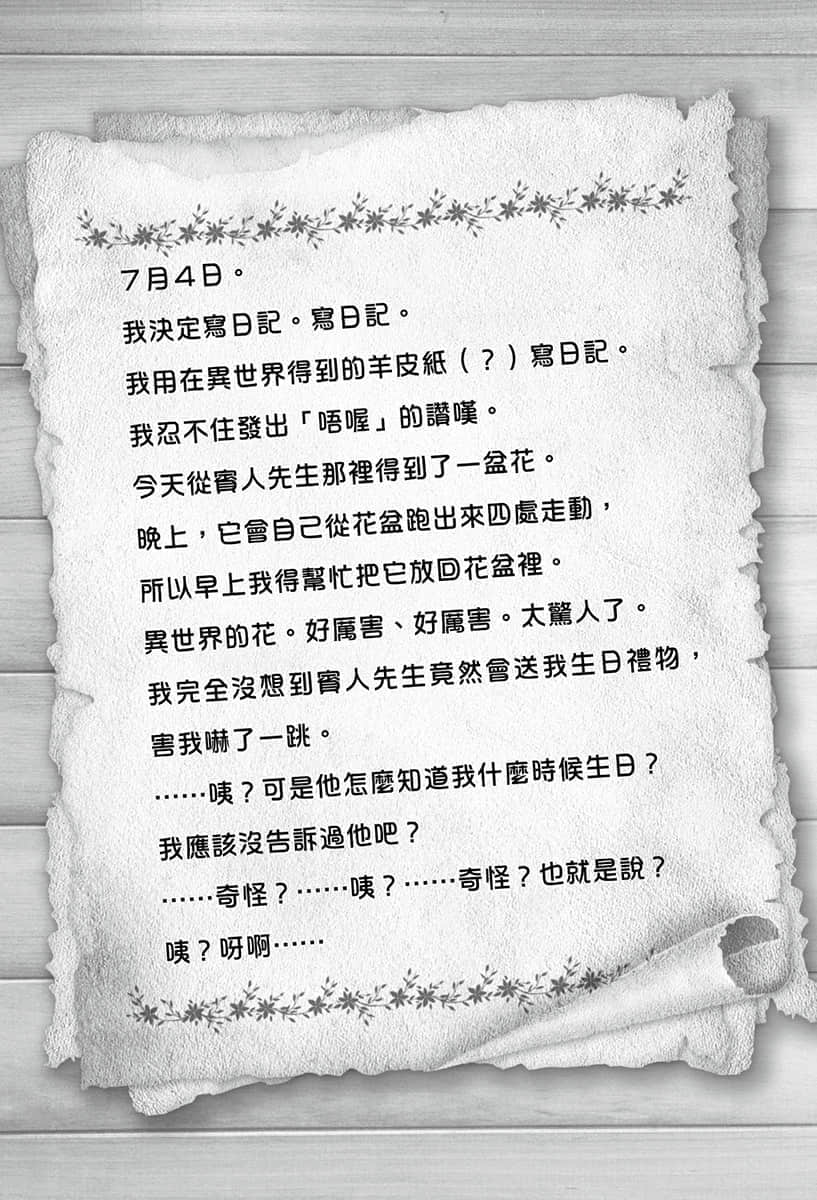 7月4日。
我決定寫日記。寫日記。
我用在異世界得到的羊皮紙（？）寫日記。
我忍不住發出「唔喔」的讚嘆。
今天從賓人先生那裡得到了一盆花。
晚上，它會自己從花盆跑出來四處走動，
所以早上我得幫忙把它放回花盆裡。
異世界的花。好厲害、好厲害。太驚人了。
我完全沒想到賓人先生竟然會送我生日禮物，
害我嚇了一跳。
……咦？可是他怎麼知道我什麼時候生日？
我應該沒告訴過他吧？
……奇怪？……咦？……奇怪？也就是說？
咦？呀啊……